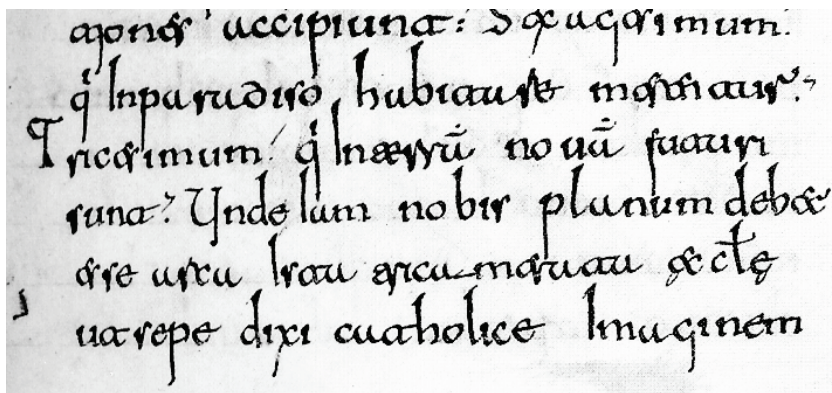 tjones accipiunt: Sexagesimum.
qi Inparadiso habitare merentur:
Tricesimum. qi Interrā nouā futuri
sunt? Unde Iam nobis planum debet
esse Ista et
ut sepe dixi catholice Imaginem